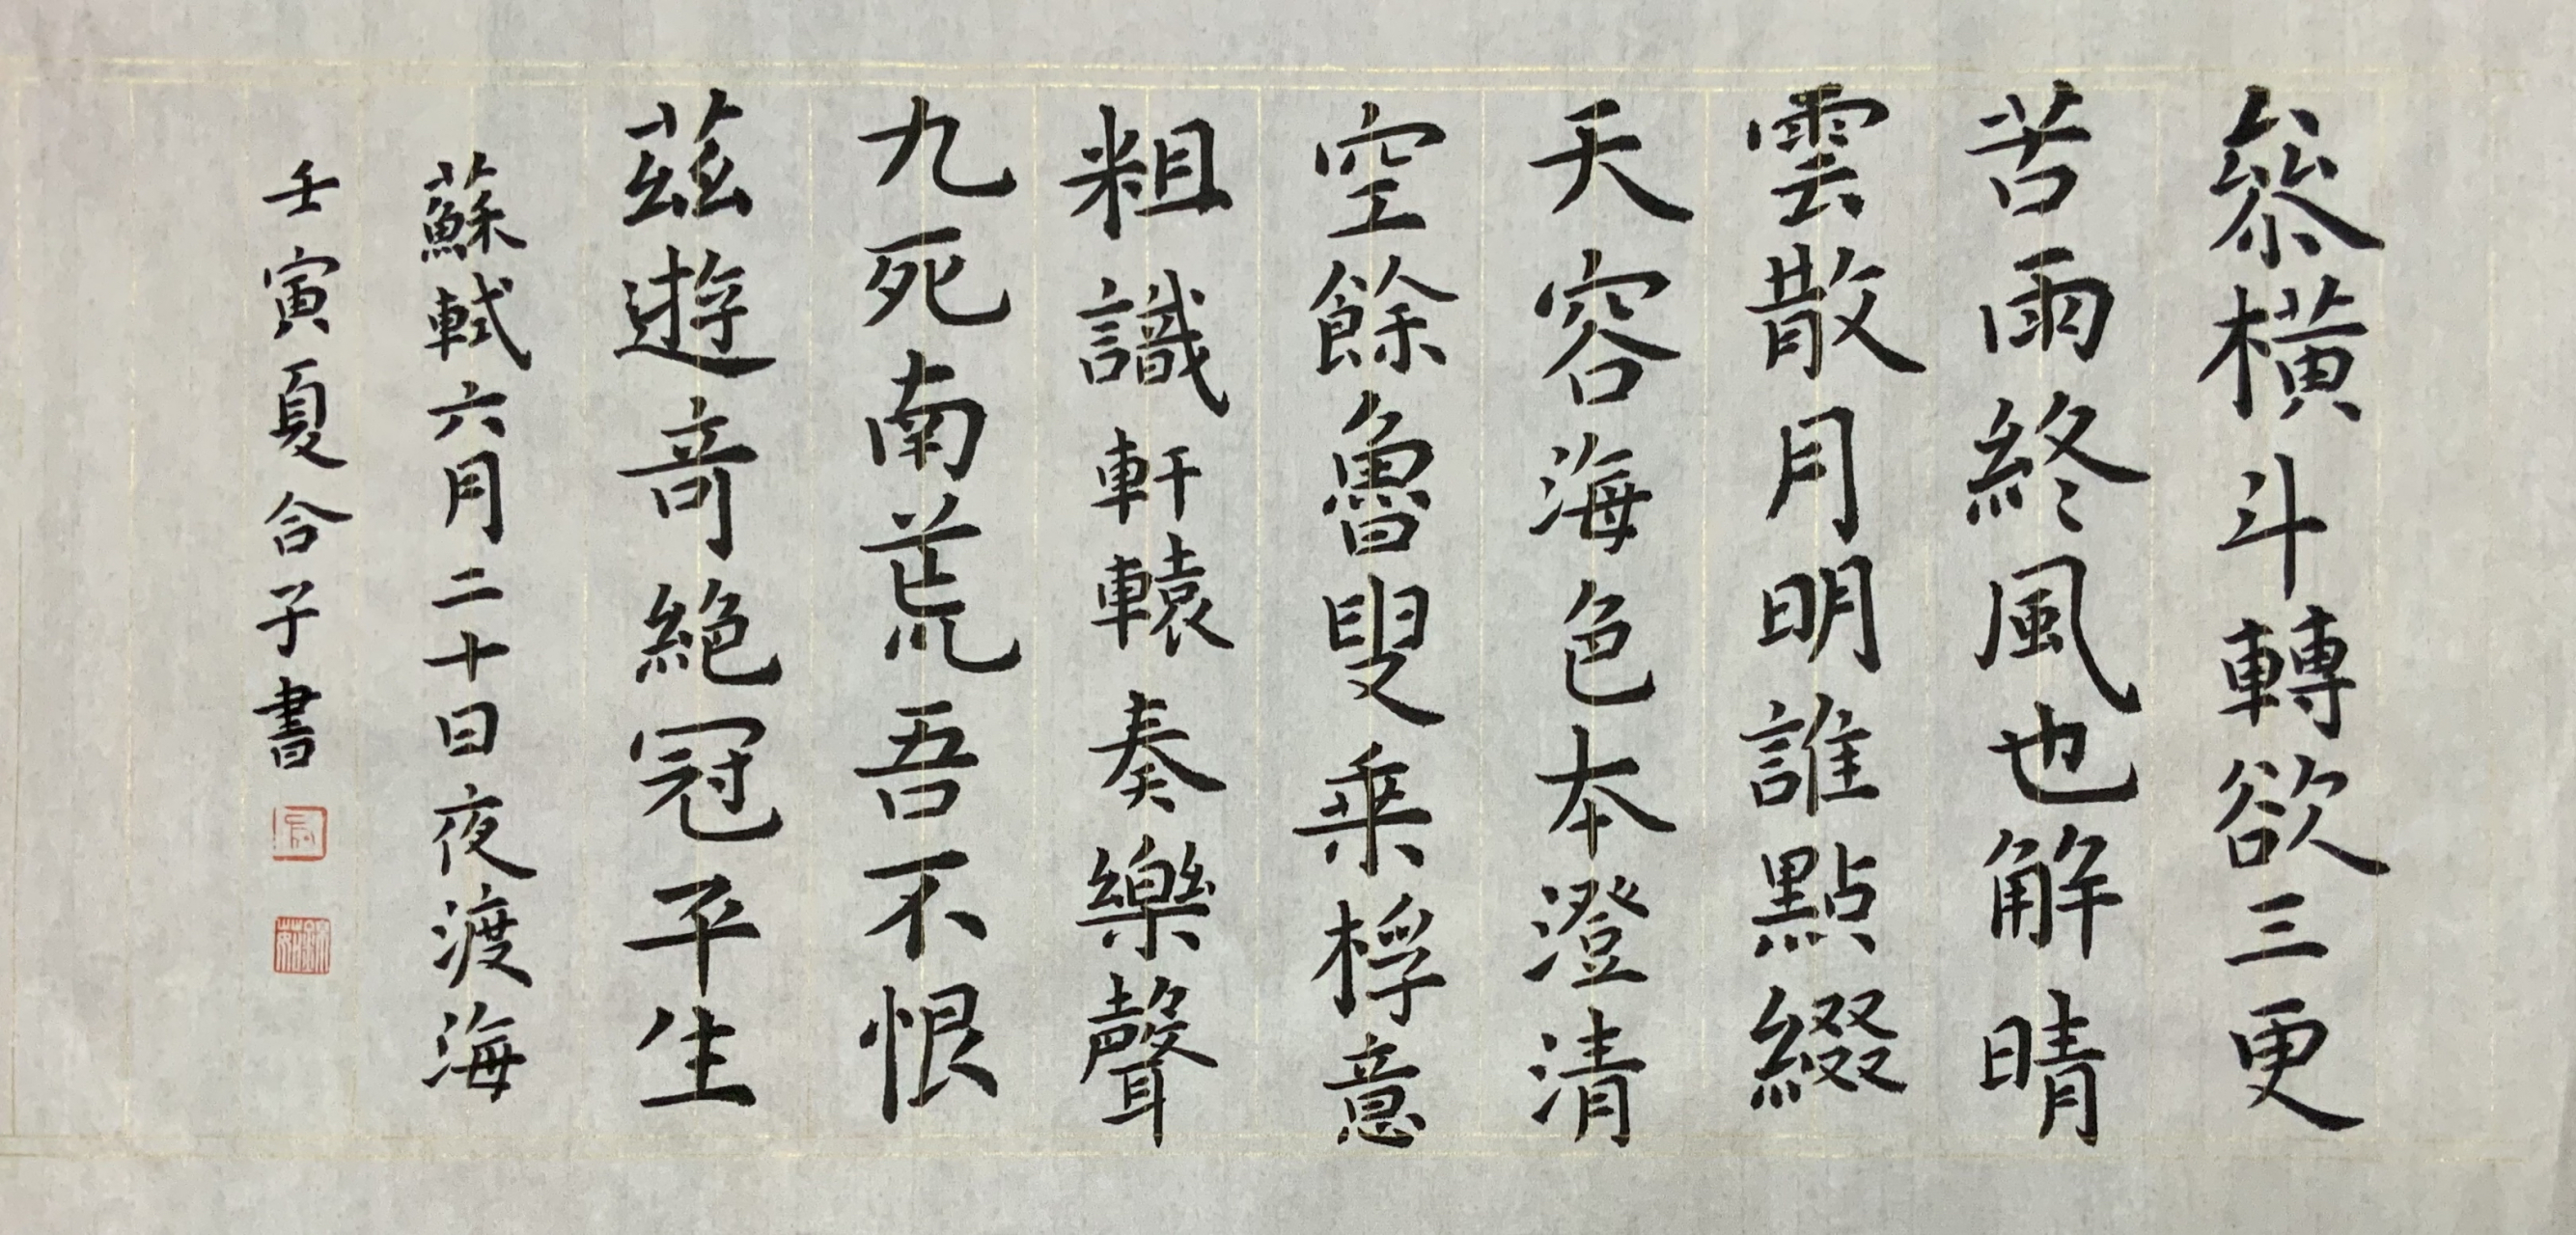 參橫斗轉欲三更
苦雨終風也解晴
雲散月明誰點綴
天容海色本澄清
空餘魯叟乗桴意
粗識軒轅奏樂聲
九死南荒吾不恨
茲遊竒絕冠平生
蘇軾六月二十日夜渡海
壬寅夏合子書